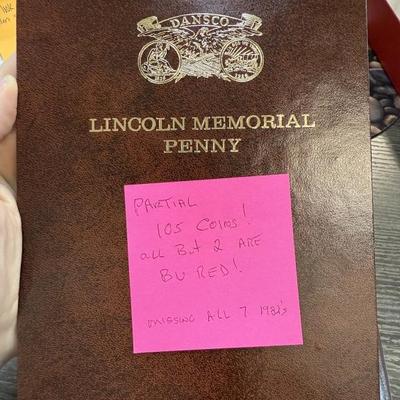 DANSCO
LINCOLN MEMORIAL
PENNY
PARTIAL
105 COINS!
all BuT 2 ARE
BU RED!
missing ALL 7 1982's